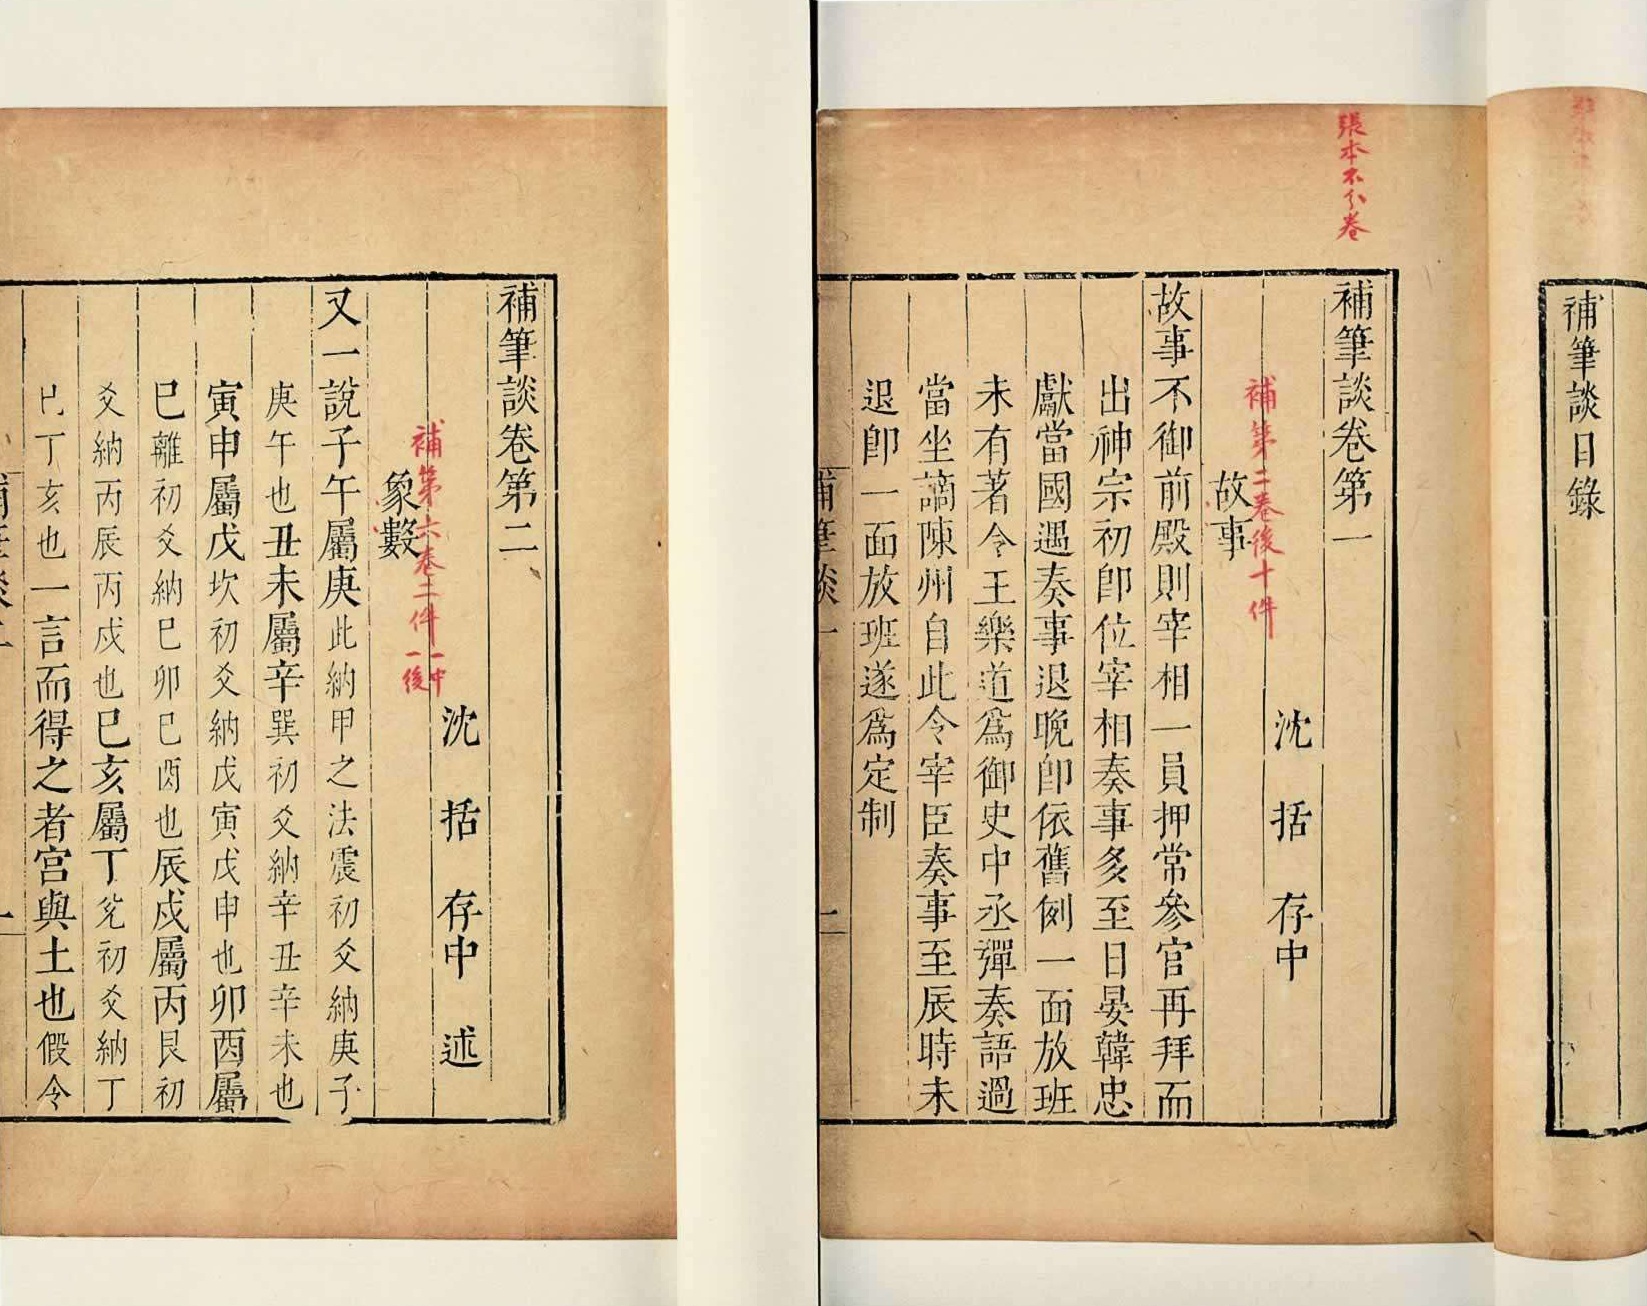 補筆談目錄
張本不分卷
補筆談卷第一
沈括存中
補第二卷後十件
故事
故事不御前殿則宰相一員押常參官再拜而
出神宗初卽位宰相奏事多至日晏韓忠
獻當國遇奏事退晚卽依舊例一面放班
未有著令王樂道爲御史中丞彈奏語過
當坐謫陳州自此令宰臣奏事至辰時未
退卽一面放班遂爲定制
補筆談卷第二
沈括存中述
補第六卷二件一中一後
象數
又一說子午屬庚此納甲之法震初爻納庚子
庚午也丑未屬辛巽初爻納辛丑辛未也
寅申屬戊坎初爻納戊寅戊申也卯酉屬
巳離初爻納巳卯巳酉也辰戌屬丙艮初
爻納丙辰丙戌也巳亥屬丁兊初爻納丁
巳丁亥也一言而得之者宮與土也假令